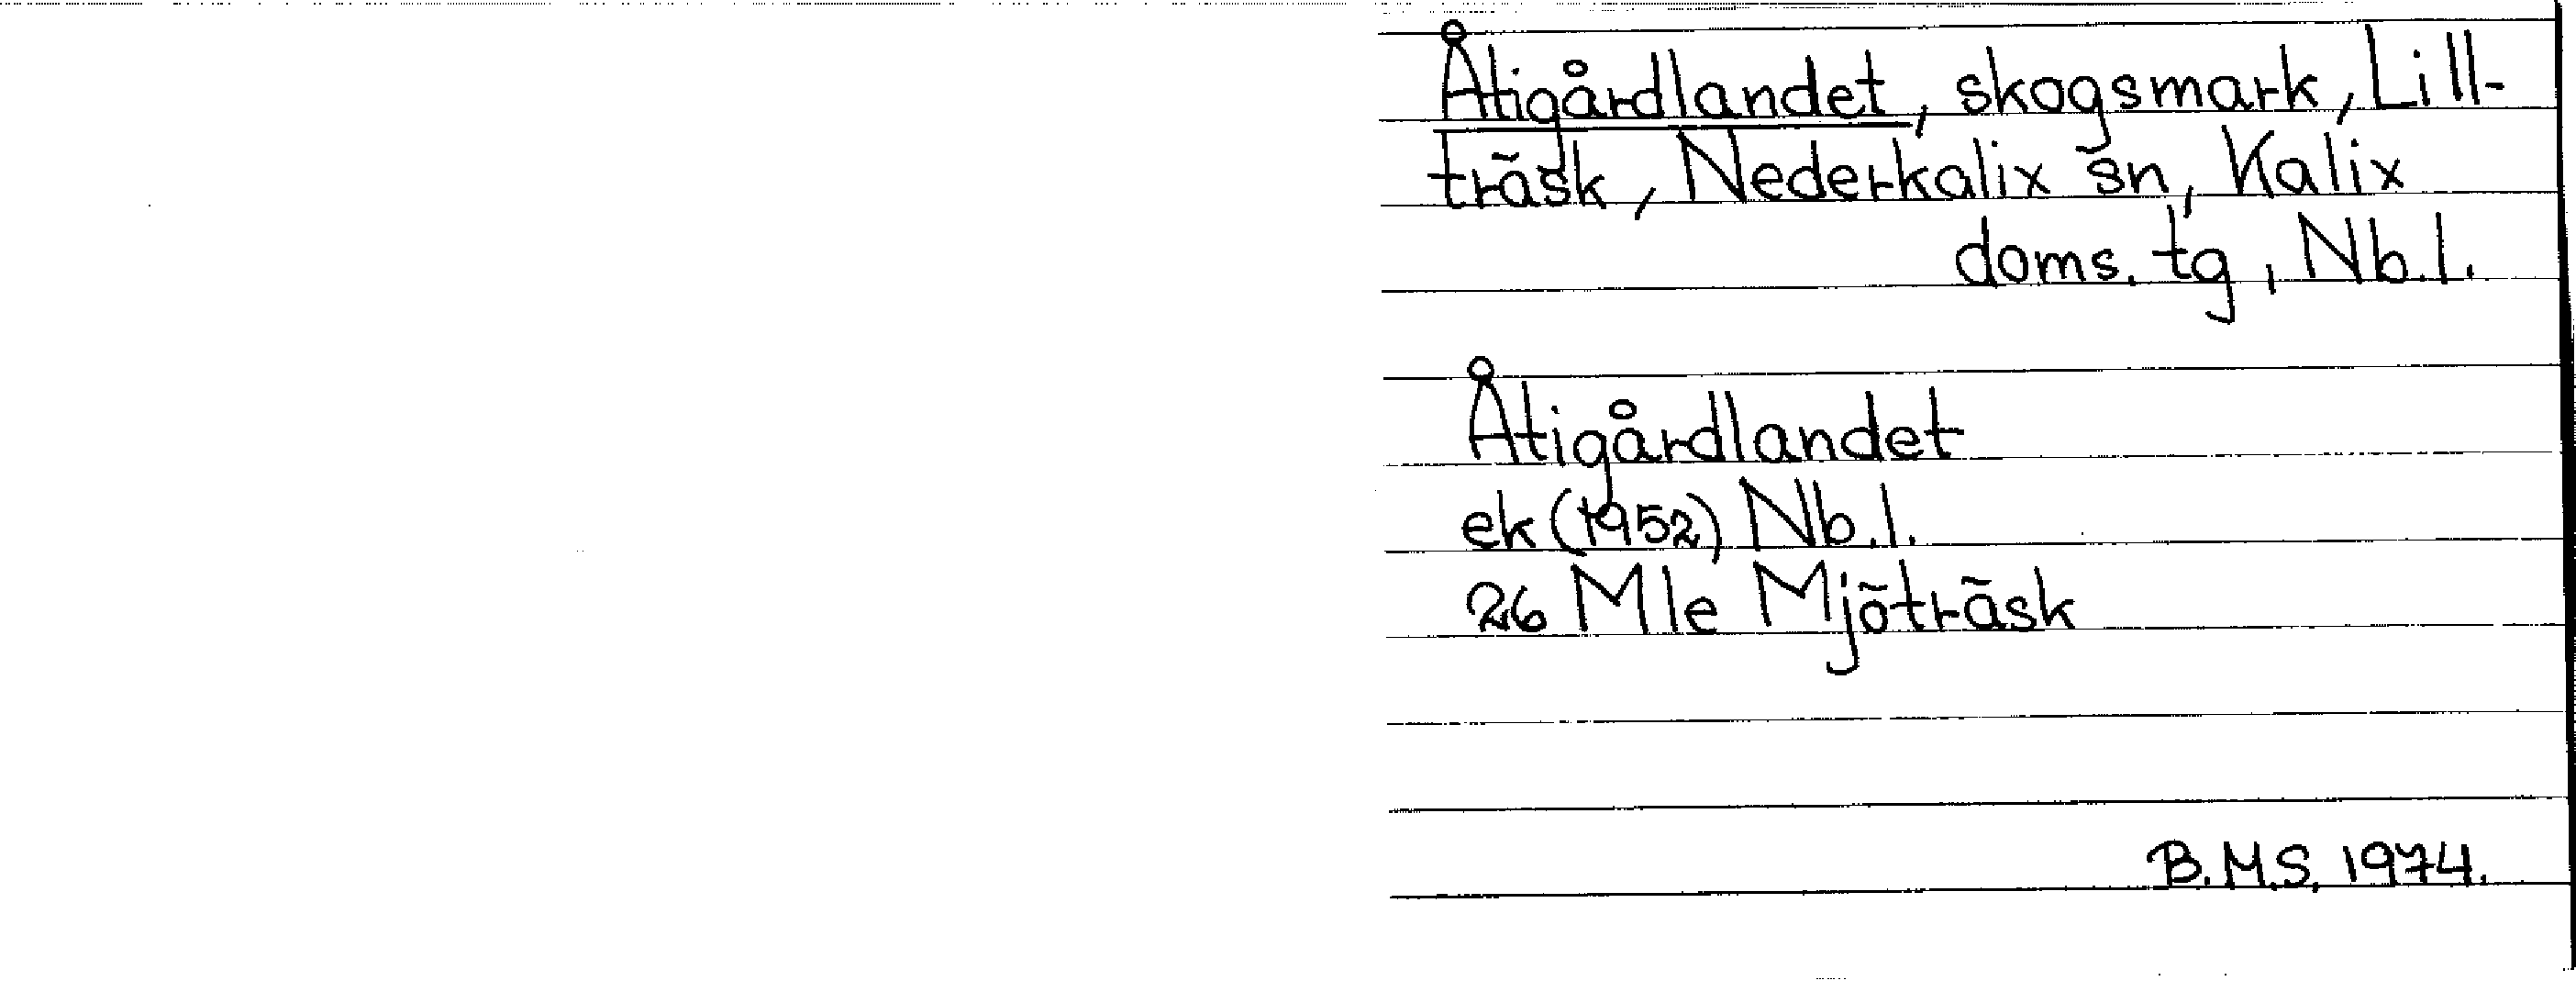 Åtigårdlandet, skogsmark, Lill-
träsk, Nederkalix sn, Kalix
doms. tg, Nb.l.
Åtigårdlandet
ek (1952) Nb.l.
26 Mle Mjöträsk
B.M.S. 1974.